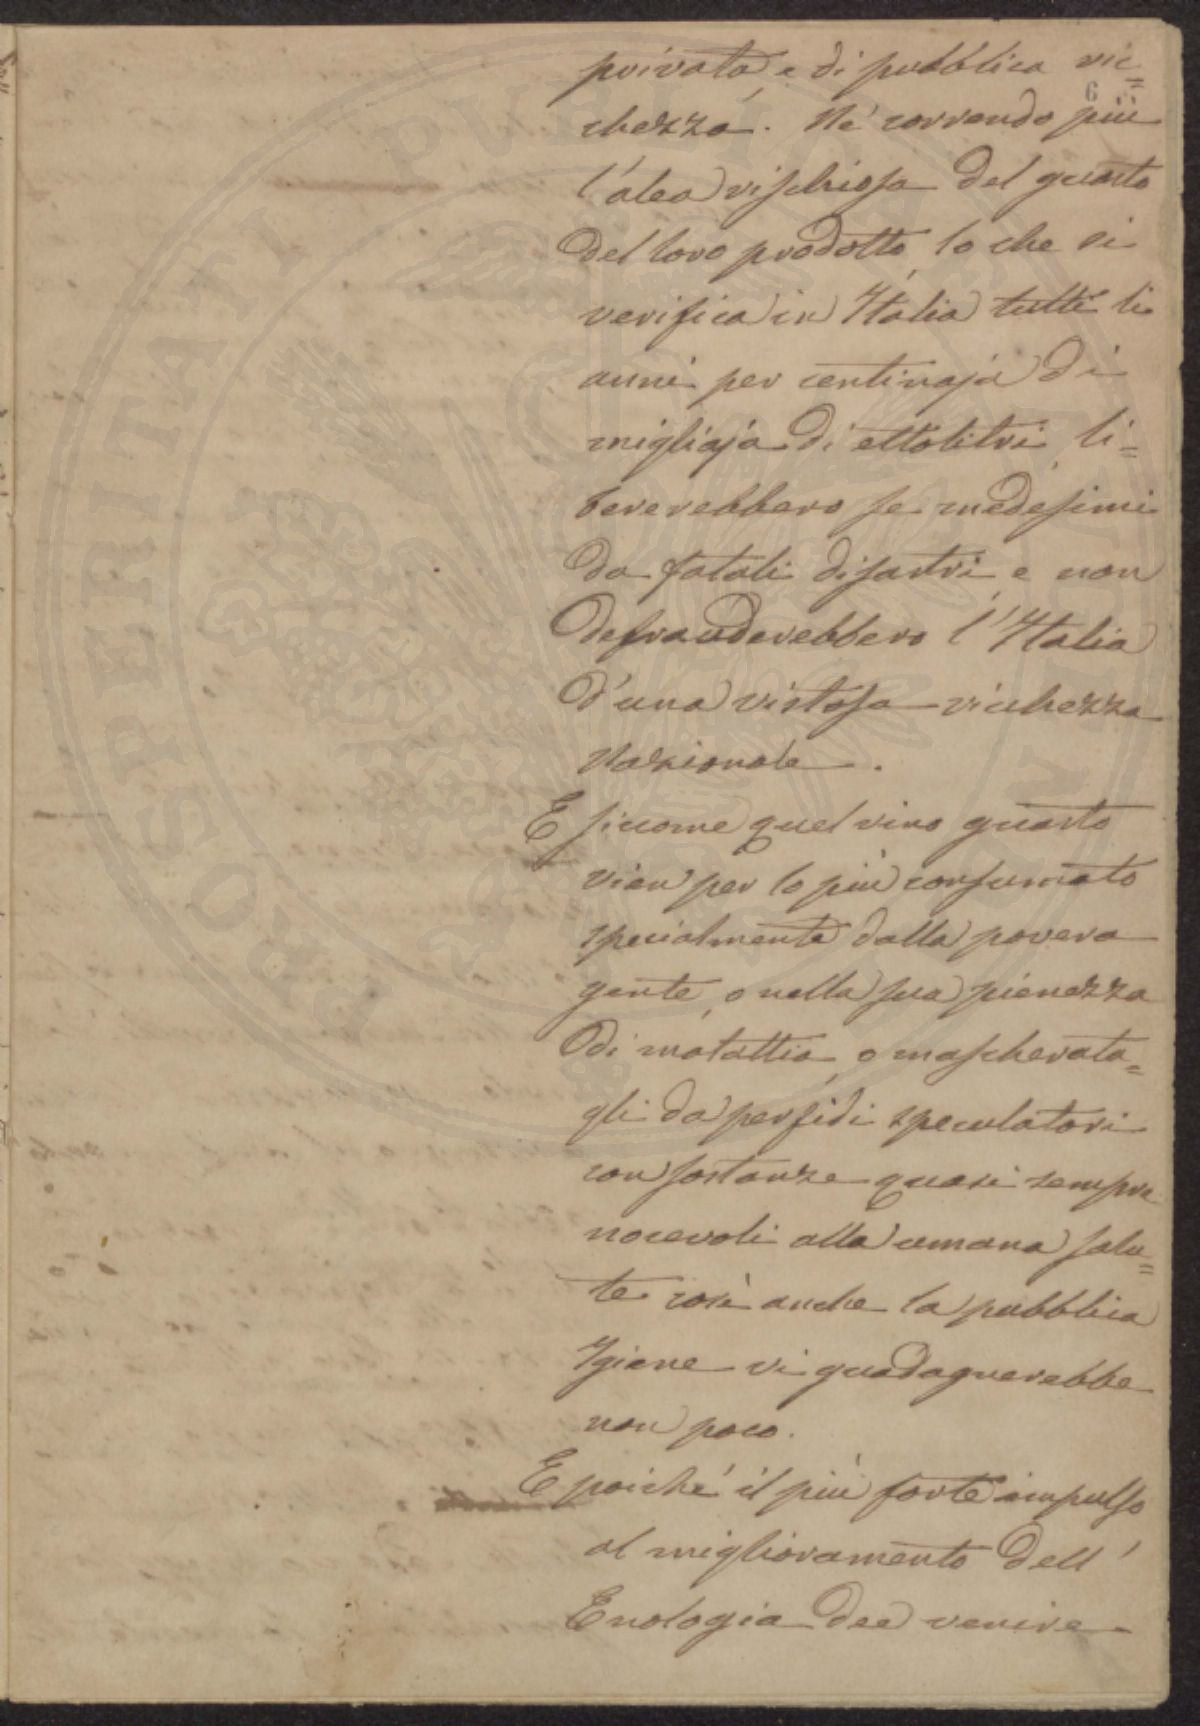 privata e di pubblica ric=
6
chezza. Né correndo più
l'alea rischiosa del guasto
del loro prodotto, lo che si
verifica in Italia tutti li
anni per centinaja di
migliaja di ettolitri, li=
bererebbero se medesimi
da fatali disastri, e non
defrauderebbero l'Italia
d'una vistosa ricchezza
Nazionale.
E siccome quel vino guasto
vien per lo più consumato
specialmente dalla povera
gente, o nella sua pienezza
di malattia, o mascherata=
gli da perfidi speculatori
con sostanze quasi sempre
nocevoli alla umana salu=
te così anche la pubblica
Igiene vi guadagnerebbe
non poco.
E poiché il più forte impulso
al miglioramento dell'
Enologia dee venire
PROSPERITATI PUBLICAE AUGENDAE